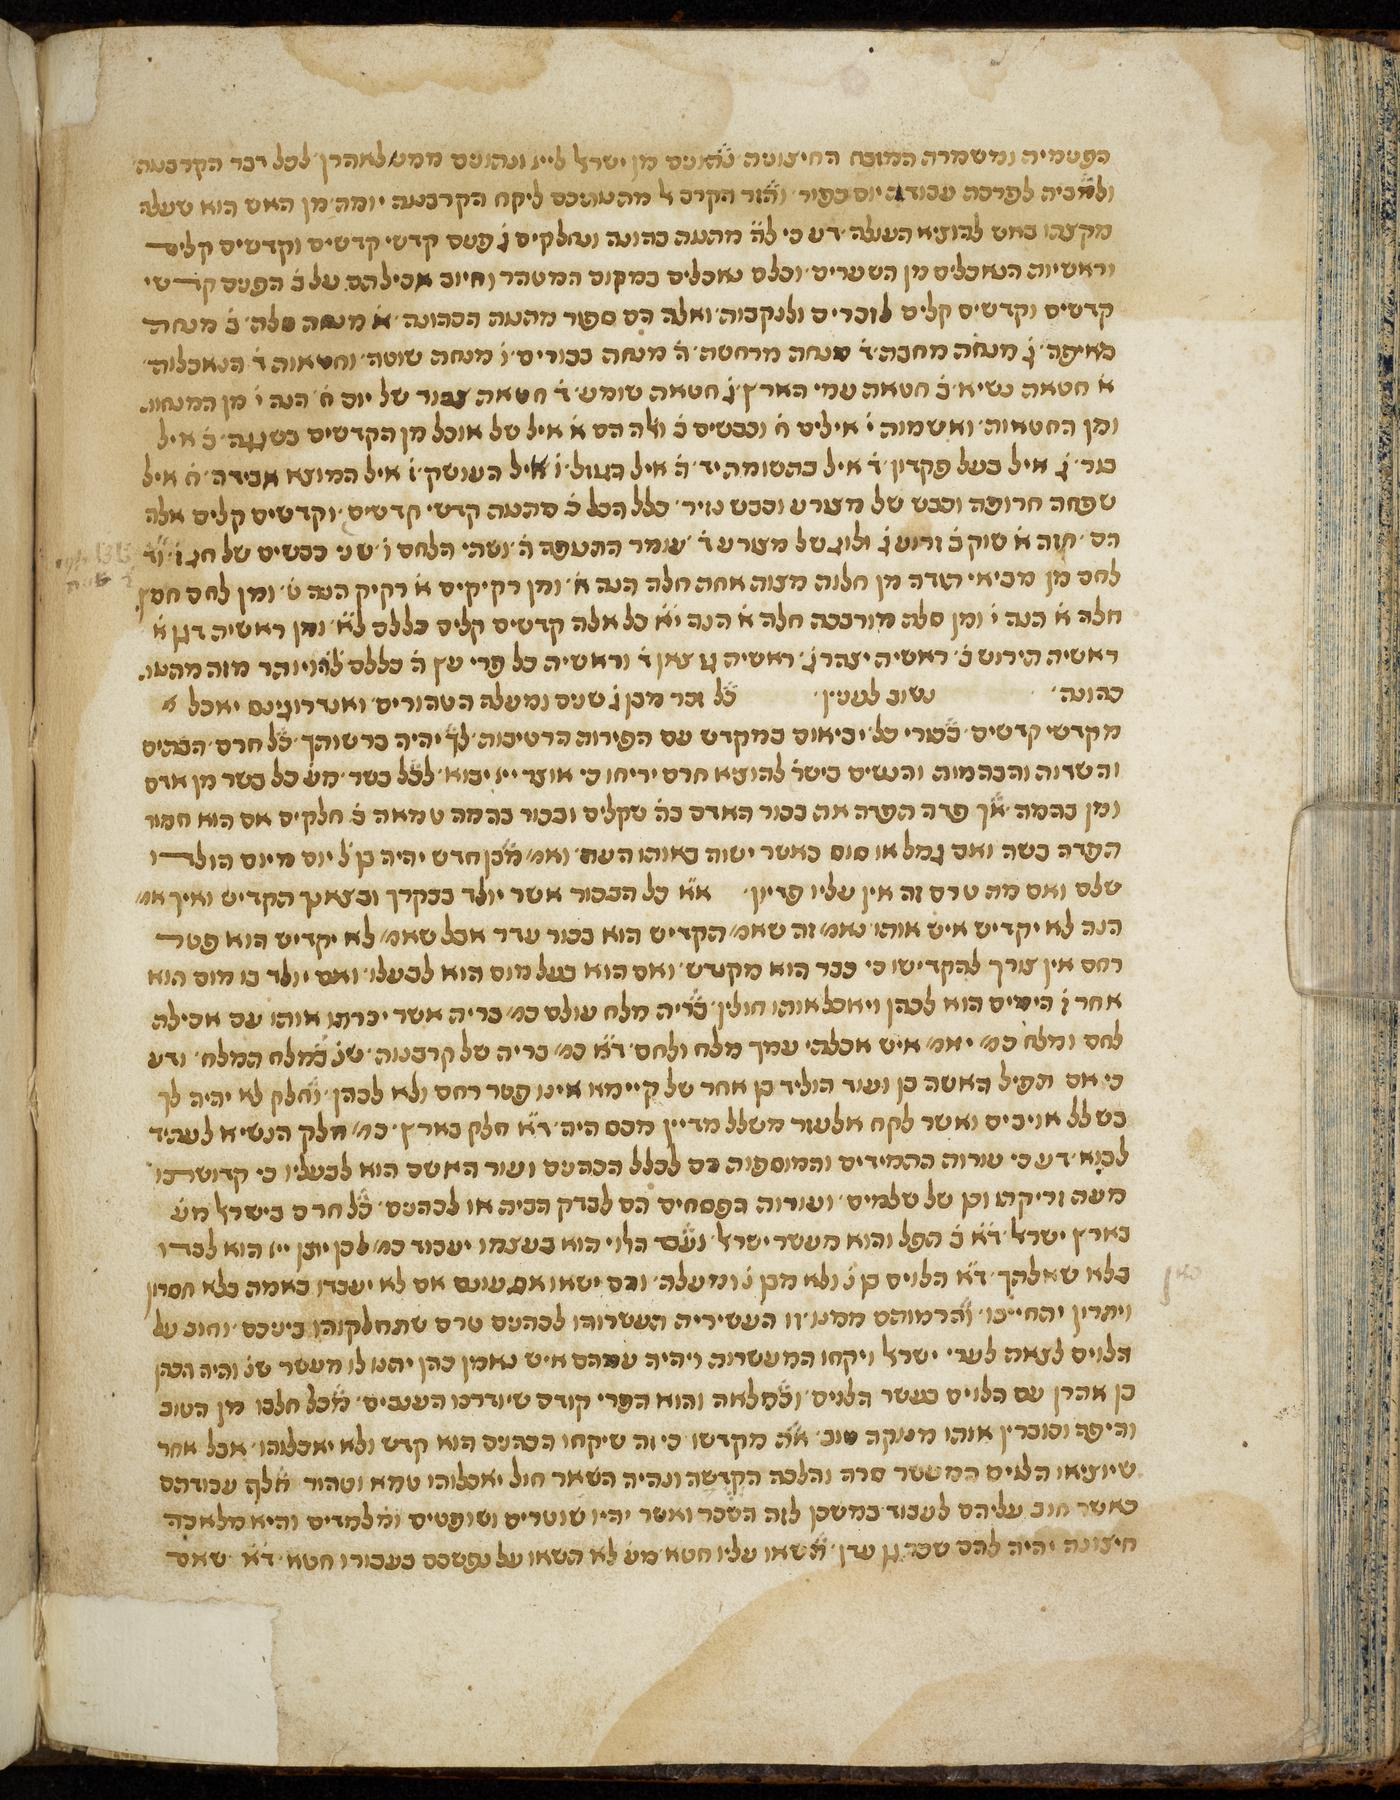 הפנימיה ומשמרה המזבח החיצונה נתונים מן ישראל לייי ונתונים ממנו לאהרן לכל דבר הקרבנות
ולמביה לפרכת עבודת יום כפור והזר הקרב ל מהנתיכם ליקח הקרבנות יומת מן האש הוא שעלה
מקצתו באש להוציא העולה דע כי לה מתנות כהונה ונחלקים ג פנים קדשי קדשים וקדשים קלים
וראשיות הנאכלים מן השערים וכלם נאכלים במקום המטהר וחיוב אכילתם על ב הפנים קדשי
קדשים וקדשים קלים לזכרים ולנקבות ואלה הם ספור מתנות הכהונה א מנחה סלת ב מנחת
באיפה ג מנחת מחבת ד מנחת מרחשת ה מנחת בכורים ו מנחת שוטה וחטאות ד הנאכלות
א חטאת נשיא ב חטאת עמי הארץ ג חטאת שומע ד חטאת צבור של יום ח הנה י מן המנחות
ומן החטאות ואשמות י אילים ח וכבשים ב ואלה הם א איל של אוכל מן הקדשים בשגגה ב איל
בגד ג איל בעל פקדון ד איל בתשומת יד ה איל בגזל ו איל העושק ז איל המוצא אבידה ח איל
שפחה חרופה וכבש של מצורע וכבש נזיר כלל הכל ב מהנות קדשי קדשים וקדשים קלים אלה
הם חזה א שוק ב זרוע ג ולוג של מצורע ד עומר התנופה ה ושתי הלחם ו שני כבשים של חג ז וד
לחם מן מביאי תודה מן חלות מצות אחת חלה הנה א ומן רקיקים א רקיק הנה ט ומן לחם חמץ
חלה א הנה י ומן סלת מורבכת חלה א הנה יא כל אלה קדשים קלים כללם לא ומן ראשית דגן א
ראשית תירוש ב ראשית יצהר ג ראשית גז צאן ד וראשית כל פרי עץ ה כללם לו ויותר מזה מתנו
כהונה נשוב לענין כל זכר מבן ג שנים ומעלה הטהורים ואנדרוגינס יאכל
מקדשי קדשים בכורי כל יביאום במקדש עם הפירות הרטיבות לך יהיה ברשותך כל חרם הבתים
והשדות והבהמות והנשים בישר להוציא חרם יריחו כי אוצר ייי יבוא לכל בשר מע כל בשר מן אדם
ומן בהמה אך פדה תפדה את בכור האדם בה שקלים ובכור בהמה טמאה ב חלקים אם הוא חמור
תפדה בשה ואם גמל או סוס כאשר ישוה באותו העת ואמ מבן חדש יהיה בן ל יום מיום הולדו
שלם ואם מת טרם זה אין עליו פדיון אא כל הבכור אשר יולד בבקרך ובצאנך תקדיש ואיך אמ
הנה לא יקדיש איש אותו נאמ זה שאמ תקדיש הוא בכור עדר אבל שאמ לא יקדיש הוא פטר
רחם אין צורך להקדישו כי כבר הוא מקודש ואם הוא בעל מום הוא לבעלו ואם יולד בו מום הוא
אחר ז הימים הוא לכהן ויאכל אותו חולין ברית מלח עולם כמ ברית אשר יכרתו אותו עם אכילת
לחם ומלח כמ יאמ איש אכלתי עמך מלח ולחם דא כמ ברית של קרבנות שנ במלח תמלח ודע
כי אם תפיל האשה בן ועוד תוליד בן אחר של קיימא אינו פטר רחם ולא לכהן וחלק לא יהיה לך
בשלל אויבים ואשר לקח אלעזר משלל מדיין מכס היה דא חלק בארץ כמ חלק הנשיא לעתיד
לבוא דע כי עורות התמידים והמוספות הם לכלל הכהנים ועור האשם הוא לבעליו כי קדושתו
מעת זריקתו וכן של שלמים ועורות הפסחים הם לבדק הבית או לכהנים כל חרם בישראל מע
בארץ ישראל דא ב הפל והוא מעשר ישראל ועבד הלוי הוא בעצמו יעבוד כמ לכן יותן ייי הוא לבדו
בלא שאלתך דא הלוים בן נ ולא מבן נ ומעלה והם ישאו את עונם אם לא יעבדו באמת בלא חסרון
ויתרון יתחייבו והרמותם ממנו זו העשירית תעשרוהו לכהנים טרם שתחלקוהו ביניכם וחוב על
הלוים לצאת לערי ישראל ויקחו המעשרות ויהיה עמהם איש נאמן כהן יתנו לו מעשר שנ והיה הכהן
בן אהרן עם הלוים בעשר הלוים וכמלאה והוא הפרי קודם שידרכו הענבים מכל חלבו מן הטוב
והיפה וסוברין אותו מנוקה טוב את מקדשו כי זה שיקחו הכהנים הוא קדש ולא יאכלוהו אבל אחר
שיוציאו הלוים המעשר סרה והלכה הקדשה ונהיה השאר חול יאכלוהו טמא וטהור אלף עבודתם
כאשר חוב עליהם לעבוד במשכן לזה השכר ואשר יהיו שוטרים ושופטים ומלמדים והיא מלאכה
חיצונה יהיה להם שכר גן עדן תשאו עליו חטא מע לא תשאו על נפשכם בעבורו חטא דא שאם
כאן